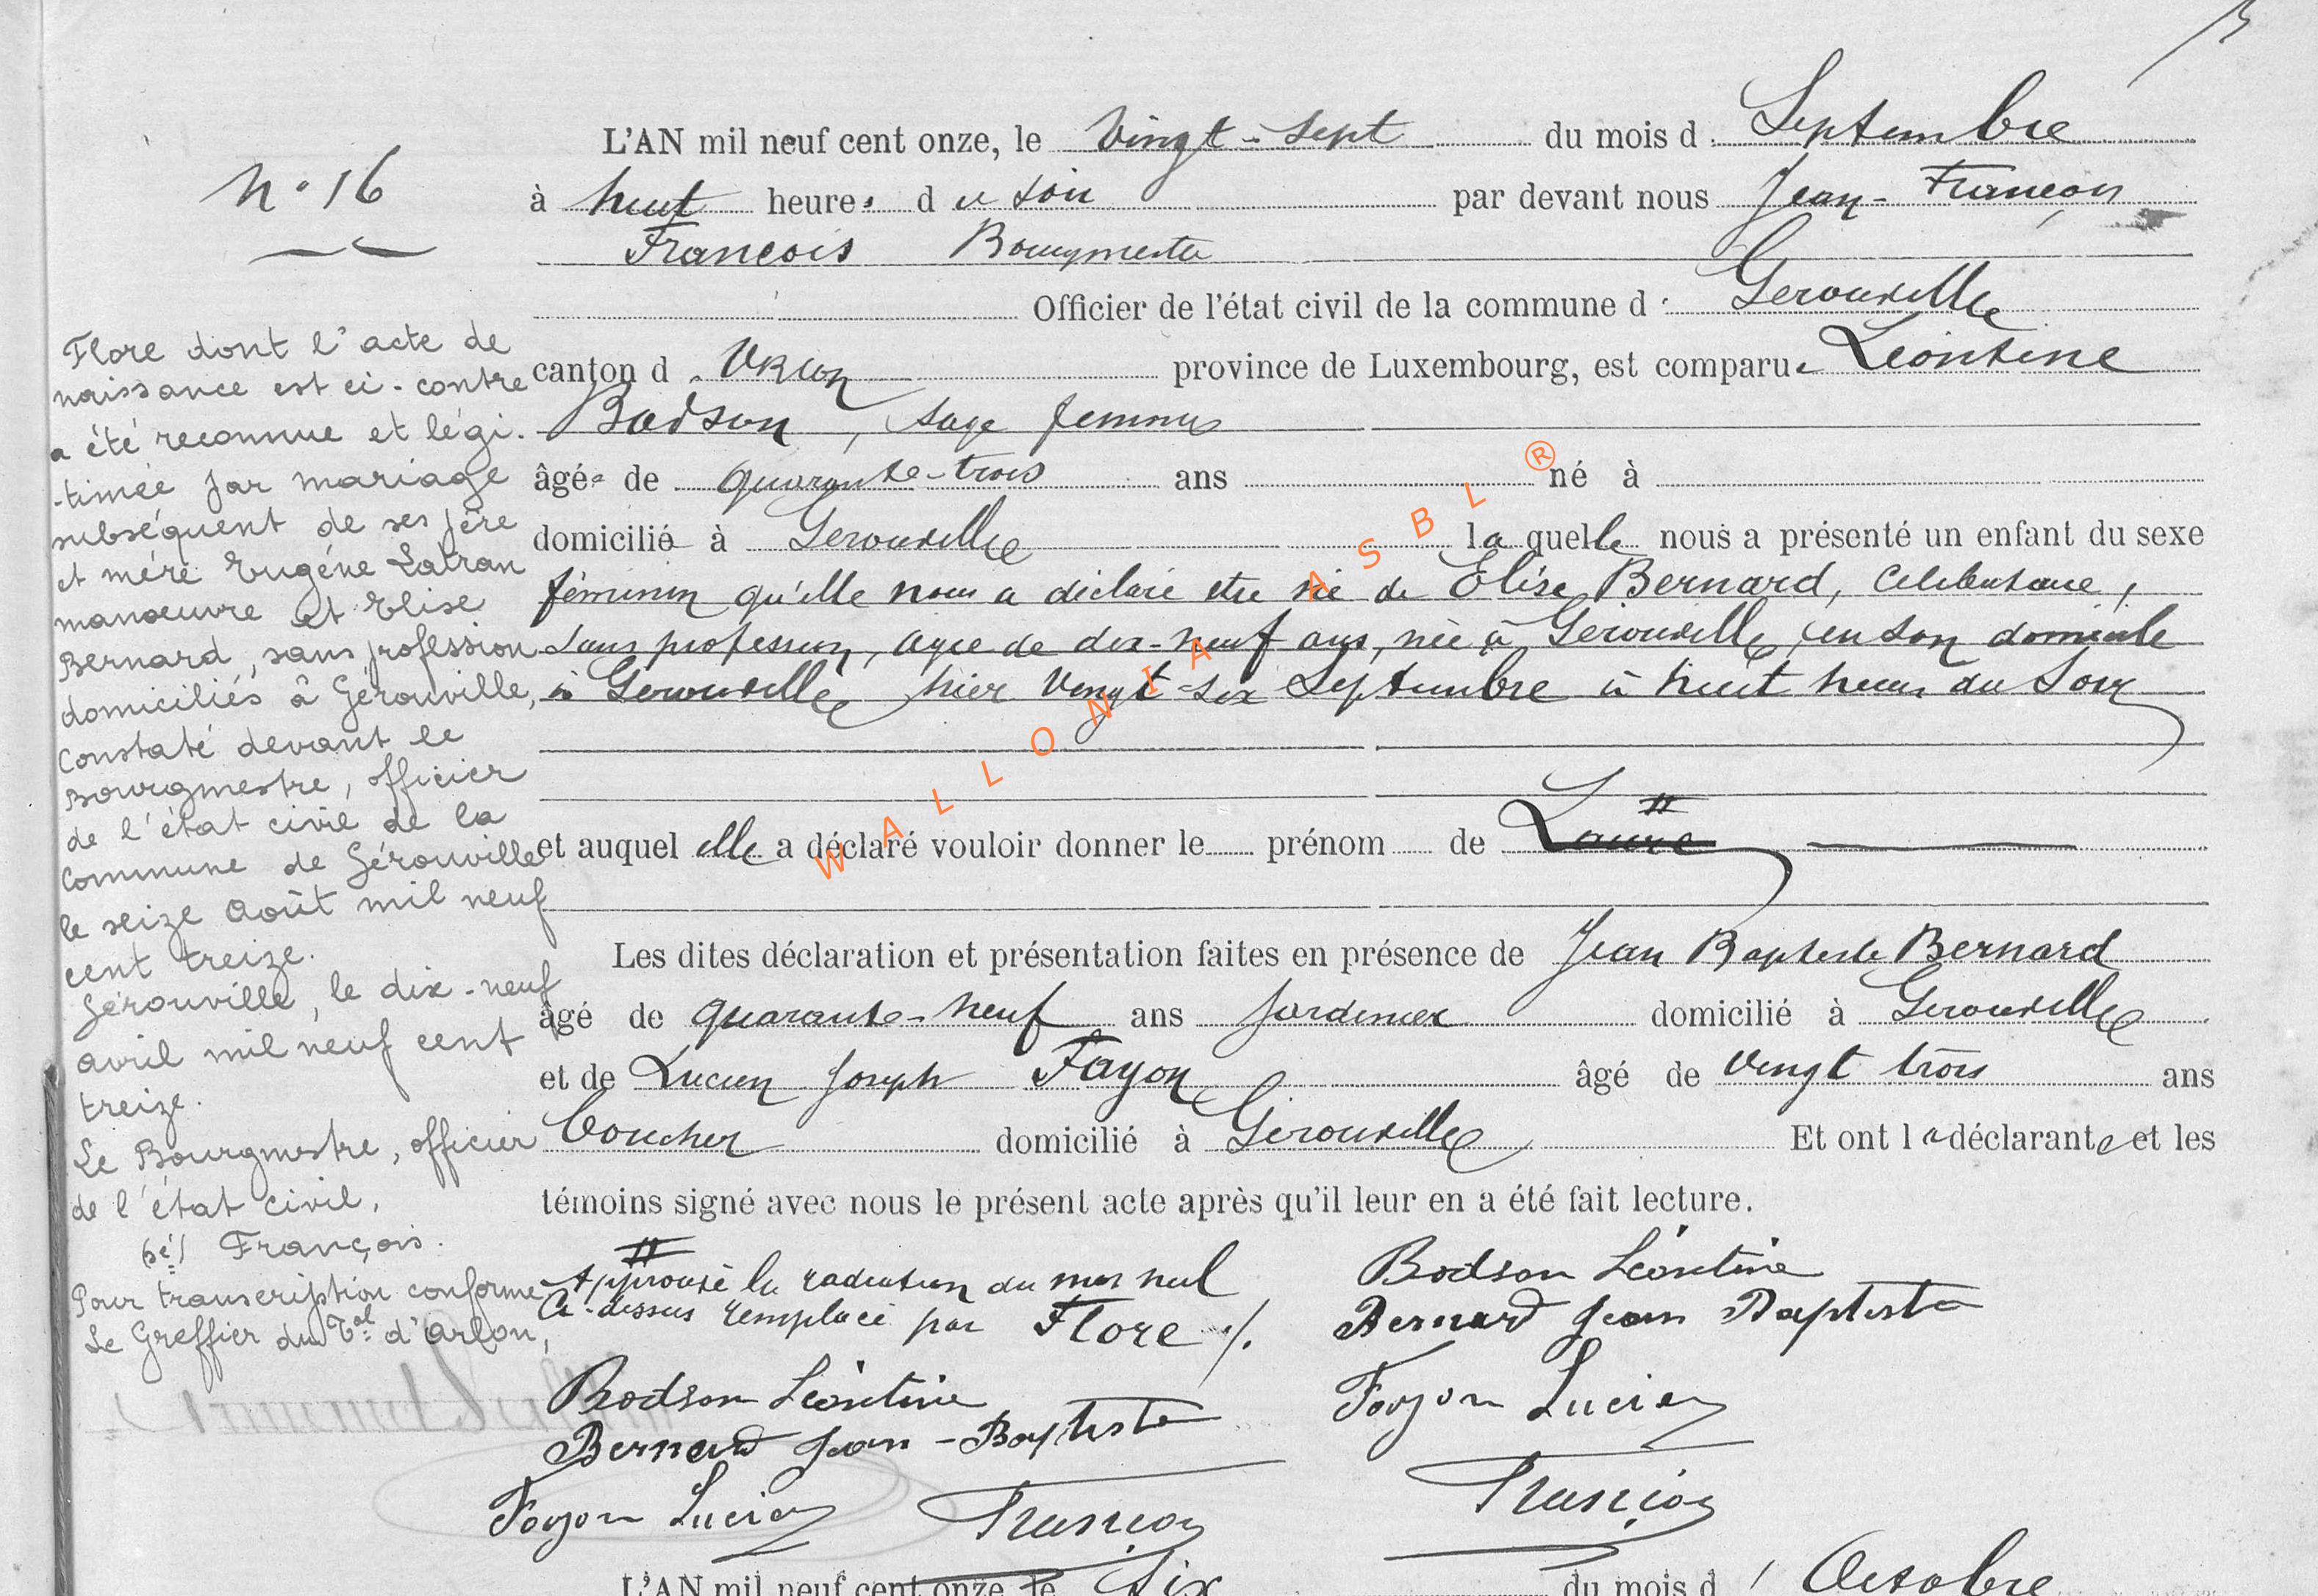 N° 16
L'AN mil neuf cent onze, le Vingt-Sept du mois d Septembre
à huit heures du soir par devant nous Jean-François
François Bourgmestre
Officier de l'état civil de la commune de Gérouville
canton d Virton province de Luxembourg, est comparue Léontine
Bodson, sage femme
âgée de quarante-trois ans né à
domicilié à Gérouville laquelle nous a présenté un enfant du sexe
féminin qu'elle nous a déclaré être né de Elise Bernard, célibataire,
sans profession, agée de dix-neuf ans, née à Gérouville, en son domicile
à Gérouville hier vingt-six Septembre à huit heures du soir
et auquel elle a déclaré vouloir donner le prénom de Laure #
Les dites déclaration et présentation faites en présence de Jean Baptiste Bernard
âgé de quarante-neuf ans jardinier domicilié à Gérouville
et de Lucien Joseph Fayon âgé de vingt trois ans
boucher domicilié à Gérouville Et ont la déclarante et les
témoins signé avec nous le présent acte après qu'il leur en a été fait lecture.
# Approuvé la radiation du mot nul
ci-dessus remplacé par Flore ./.
Bodson Léontine
Bernard Jean Baptiste
Fayon Lucien
François
Bodson Léontine
Bernard Jean-Baptiste
Fayon Lucien
François
Flore dont l'acte de
naissance est ci-contre
a été reconnue et légi-
-timée par mariage
subséquent de ses père
et mère Eugène Latran
manœuvre et Elise
Bernard, sans profession
domiciliés à Gérouville,
constaté devant le
Bourgmestre, officier
de l'état civil de la
commune de Gérouville
le seize Août mil neuf
cent treize.
Gérouville, le dix-neuf
avril mil neuf cent
treize.
Le Bourgmestre, officier
de l'état civil,
(sé) François.
Pour transcription conforme
Le Greffier du Tal d'Arlon,
L'AN mil neuf cent onze le Six du mois d' Octobre
WALLONIA ASBL ®